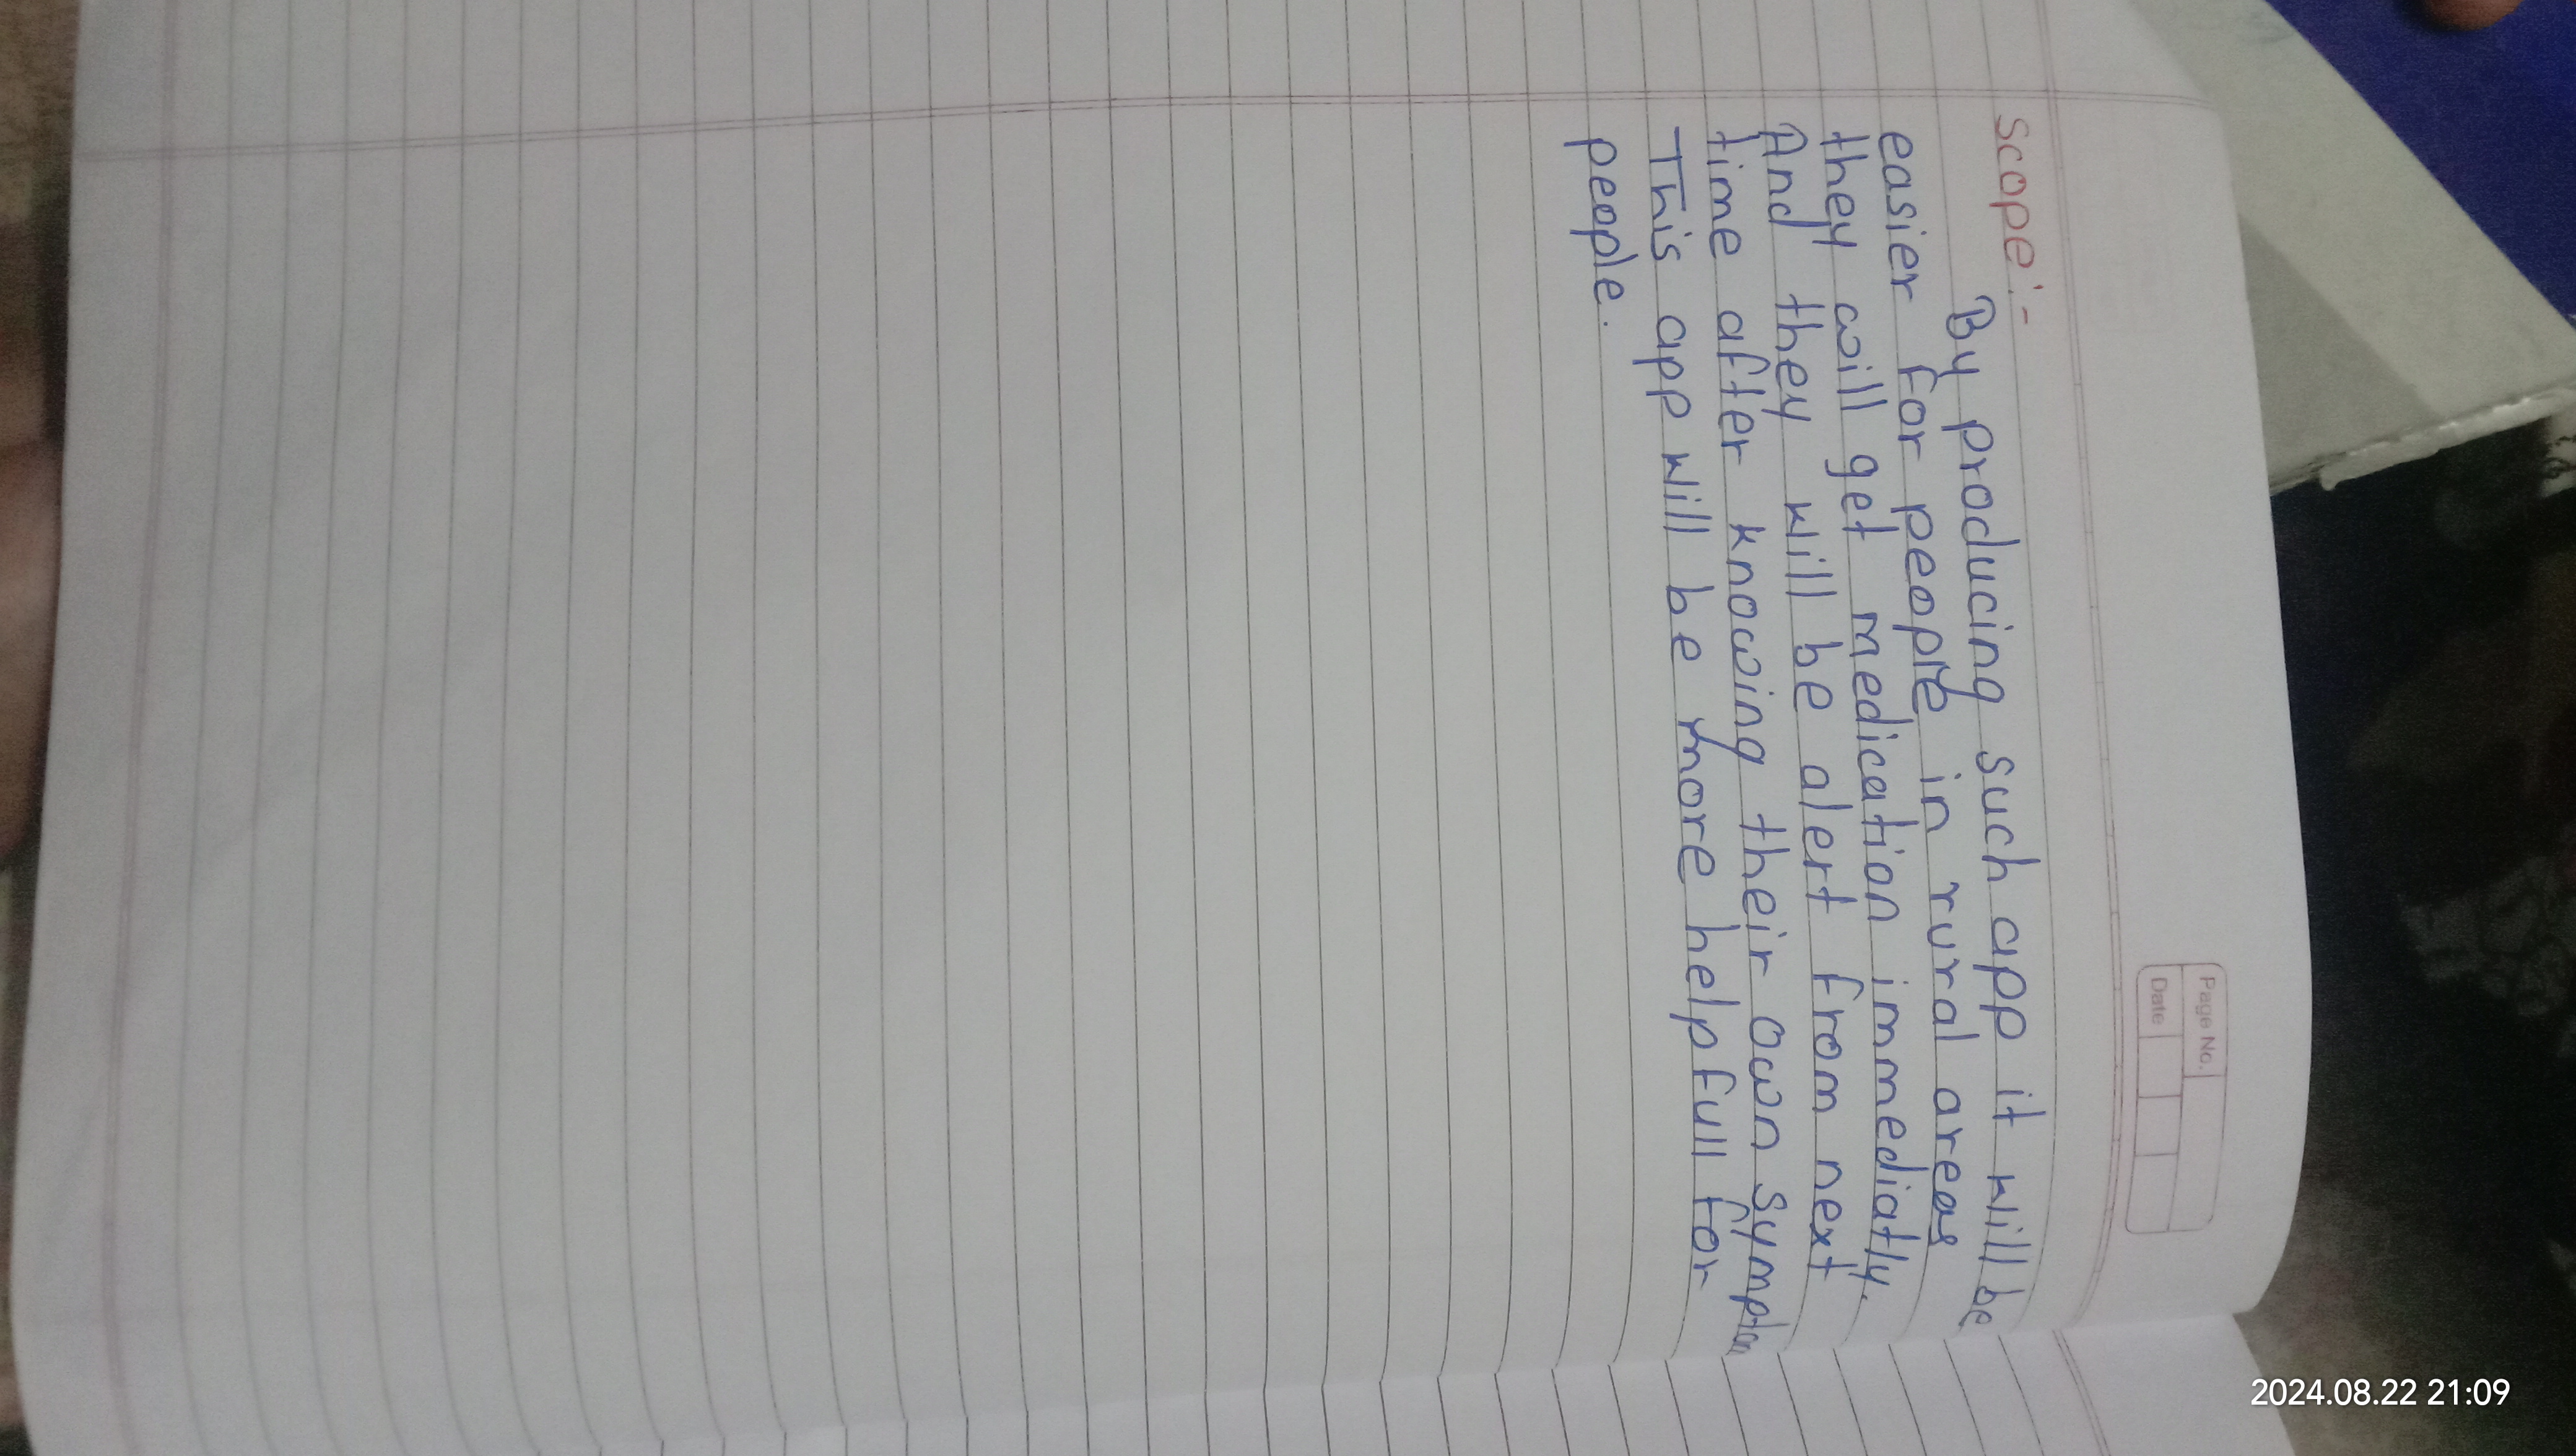 Page No.
Date
scope:-
By producing such app it will be
easier for people in rural areas
they will get medication immediatly.
And they will be alert from next
time after knowing their own symptom
This app will be more helpfull for
people.
2024.08.22 21:09